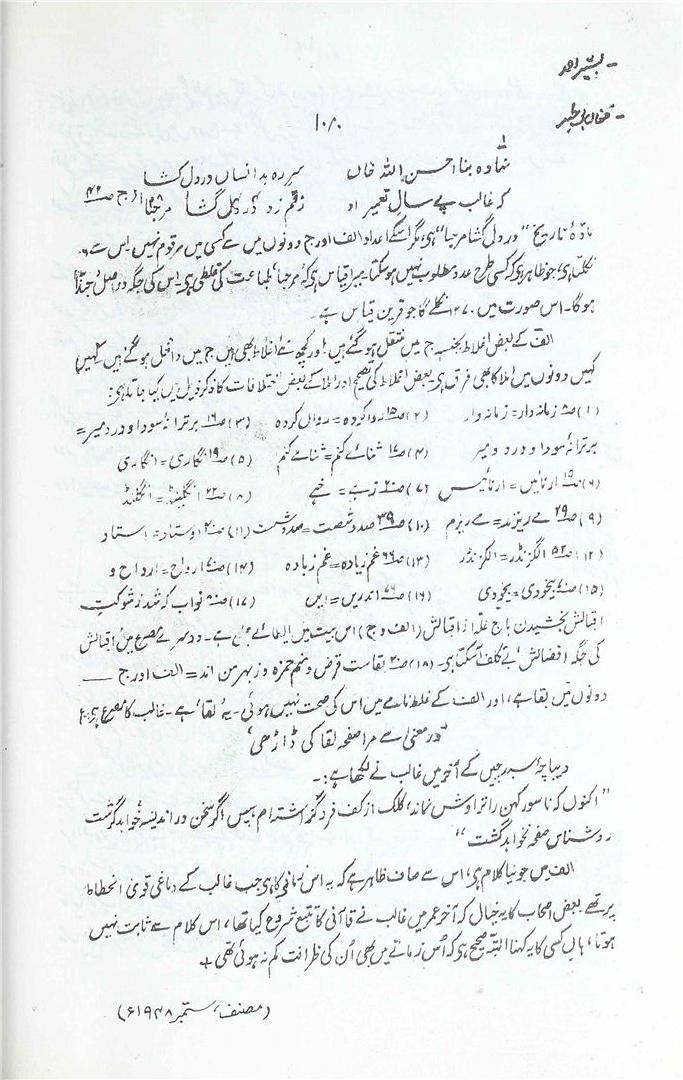 - بشیر احمد
- قاضی
۱۰۸۰
نہادہ بنا احسن اللہ خاں سررہ بدانساں در دل کشا
کہ غالب پے سال تعمیر او رقم زد در دل کشا مرحبا (ج ص ۴۲)
مادۂ تاریخ "در دل کشا مرحبا" ہی، مگر اسکے اعداد الف اور ج دونوں میں سے کسی میں مرقوم نہیں، اس سے
نکلتا ہی، جو ظاہر ہی کہ کسی طرح عدد مطلوب نہیں ہو سکتا۔ میرا قیاس ہی کہ مرحبا، طباعت کی غلطی ہی۔ اس کی جگہ در اصل حبذا
ہو گا۔ اس صورت میں ۱۲۷۰ نکلے گا جو قرین قیاس ہے۔
الف کے بعض اغلاط بجنسہ ج میں منتقل ہو گئے ہیں، اور کچھ نئے اغلاط بھی ہیں جو ج میں داخل ہو گئے ہیں کہیں
کہیں دونوں میں املا کا بھی فرق ہی۔ بعض اغلاط کی تصحیح اور املا کے بعض اختلافات کا ذکر ذیل میں کیا جاتا ہی:
(۱) ص۸ زمانہ دار = زمانہ وار (۲) ص۱۵ روا کردہ = رواں کردہ (۳) ص۱۶ بر ترانۂ سودا و درد میر =
بر ترانۂ سودا و درد و میر (۴) ص۱۷ شنائے کنم = ثنائے کنم (۵) ص۱۹ نگاری = انگاری
(۶) ص۱۹ ارتائیں = ارتائیس (۷) ص۲۰ زہے = خہے (۸) ص۲۲ انگلینڈ = انگلنڈ
(۹) ص۲۹ مے ریزند = مے ریزم (۱۰) ص۳۹ صد و شصت = صد و شست (۱۱) ص۴۰ اوستاد = استاد
(۱۲) ص۵۲ الگزنڈر = الکزنڈر (۱۳) ص۶۶ غم زیادہ = غم زبادہ (۱۴) ص۷۰ رواح = ارواح و
(۱۵) ص۷۰ بیخودی = بخودی (۱۶) ص۷۶ اندریں = ایں (۱۷) ص۸۰ نواب کہ شد ز شوکت
اقبالش بخشیدن باج از اقبالش (الف و ج) اس بیت میں ایطائے ہے۔ دوسرے مصرع میں اقبالش
کی جگہ افضالش بے تکلف آ سکتا ہی۔ (۱۸) ص۲۰ بقاست قرض و منم حمزہ و زہر من اند = الف اور ج
دونوں میں بقا ہے، اور الف کے غلط نامے میں اس کی صحت نہیں ہوئی۔ یہ لقا ہے۔ غالب کا مصرع ہی:
'در معنی سے مرا صفحہ لقا کی ڈاڑھی'
دیباچۂ سبد چیں کے آخر میں غالب نے لکھا ہے:۔
"اکنوں کہ ناسور کہن را تراوش نماند، کلک از کف فرو گزاشتہ ام پس اگر سخن در اندیشہ خواہد گزشت
روشناس صفحہ نخواہد گشت"
الف میں جو نیا کلام ہی، اس سے صاف ظاہر ہے کہ یہ اس زمانے کا ہی جب غالب کے دماغی قویٰ انحطاط
پر تھے۔ بعض اصحاب کا یہ خیال کہ آخر عمر میں غالب نے قاآنی کا تتبع شروع کیا تھا، اس کلام سے ثابت نہیں
ہوتا، ہاں کسی کا یہ کہنا البتہ صحیح ہی کہ اُس زمانے میں بھی اُن کی ظرافت کم نہ ہوئی تھی +
(مصنف، ستمبر ۱۹۴۸ء)